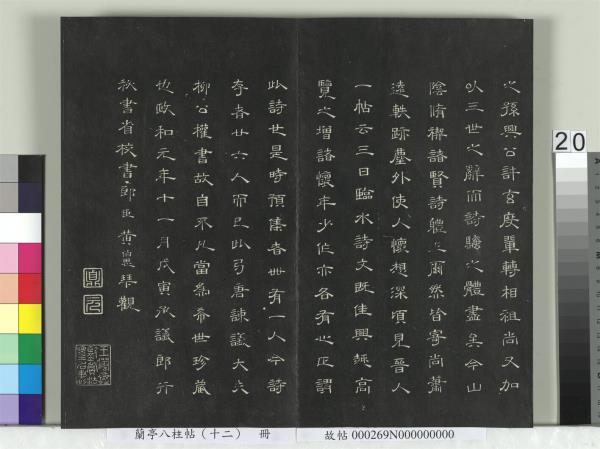 之孫興公許玄度輩轉相祖尚又加
以三世之辭而詩騷之體盡矣今山
陰脩禊諸賢詩體正爾然皆寄尚蕭
遠軼跡塵外使人懷想深頃見晉人
一帖云三日臨水詩文既佳興趣高
覽之增諸懷年少作亦各有心正謂
此詩也是時預集者卌有一人今詩
存者廿六人而已此乃唐諫議大夫
柳公權書故自不凡當為希世珍藏
也政和元年十一月戊寅承議郎行
秘書省校書郎臣黃伯思 觀
20
蘭亭八柱帖（十二） 冊
故帖 000269N000000000